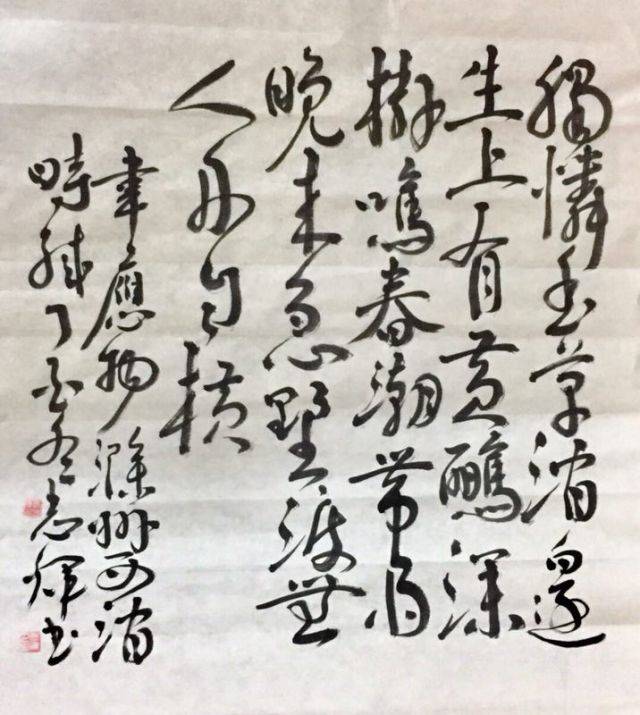 獨憐幽草澗邊
生上有黃鸝深
樹鳴春潮帶雨
晚來急野渡無
人舟自橫
韋應物滁州西澗
時丁酉冬志輝書